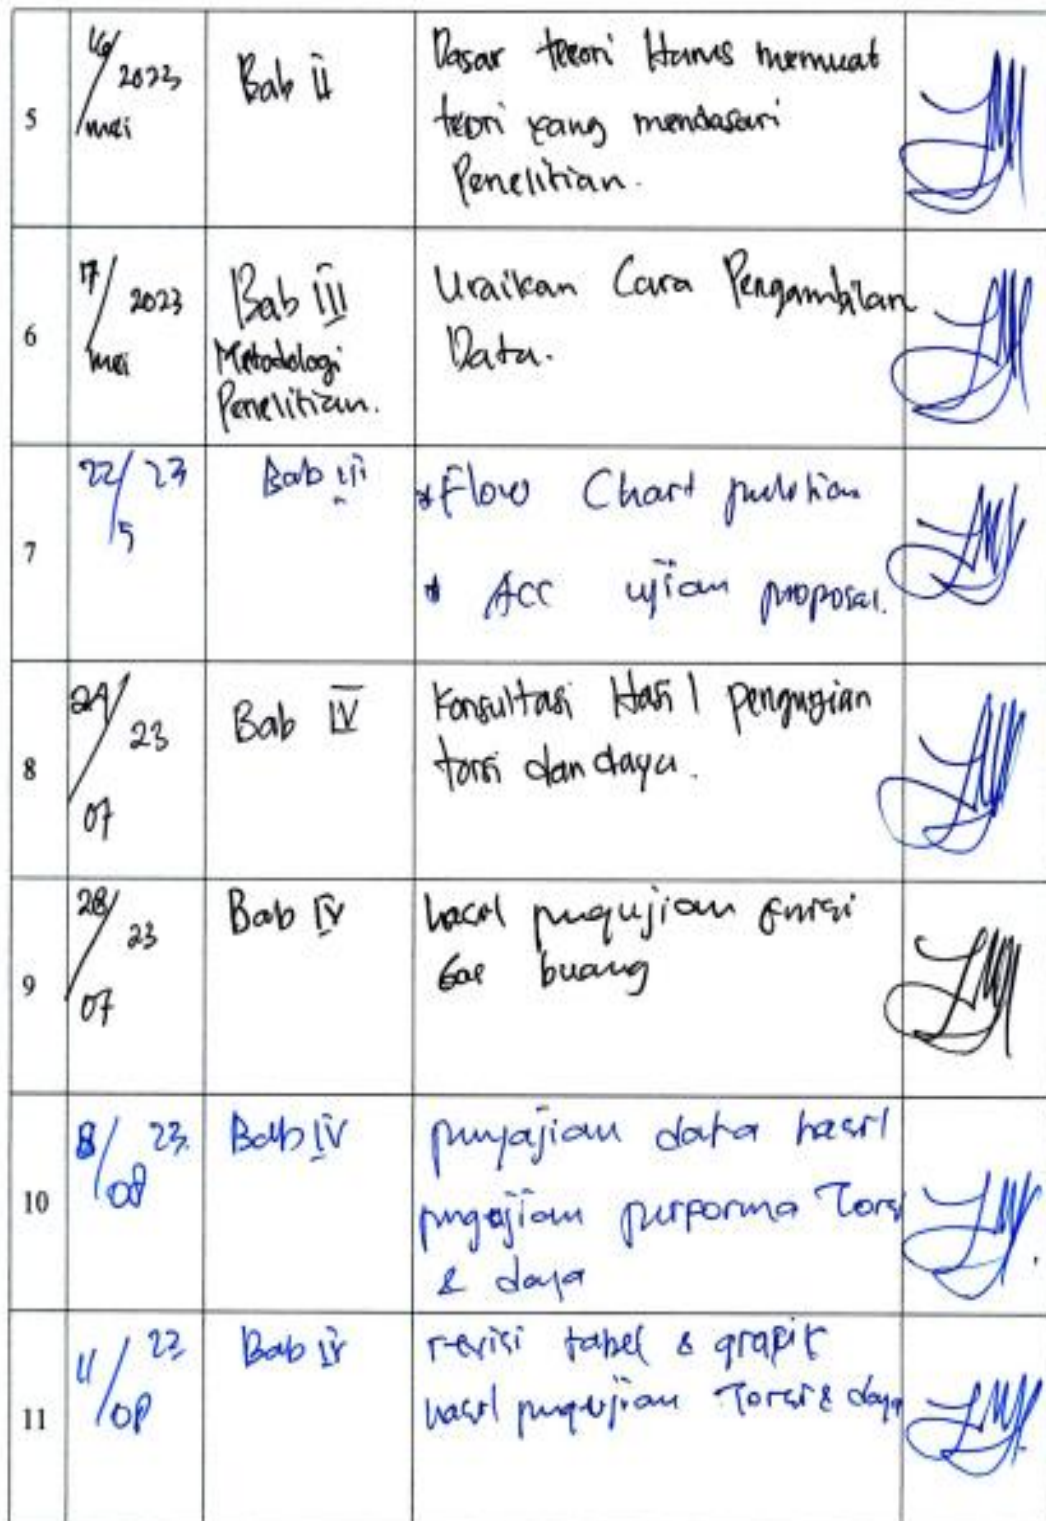 5
16/mei 2023
Bab II
Dasar teori Harus memuat
teori yang mendasari
Penelitian.
6
17/mei 2023
Bab III
Metodologi
Penelitian.
Uraikan Cara Pengambilan
Data.
7
22/5 23
Bab III
* Flow Chart penelitian
* ACC ujian proposal.
8
24/07 23
Bab IV
Konsultasi Hasil pengujian
torsi dan daya.
9
28/07 23
Bab IV
hasil pengujian Emisi
Gas buang
10
8/08 23
Bab IV
penyajian data hasil
pengujian purporma Torsi
& daya
11
11/08 23
Bab IV
revisi tabel & grapik
hasil pengujian Torsi & daya